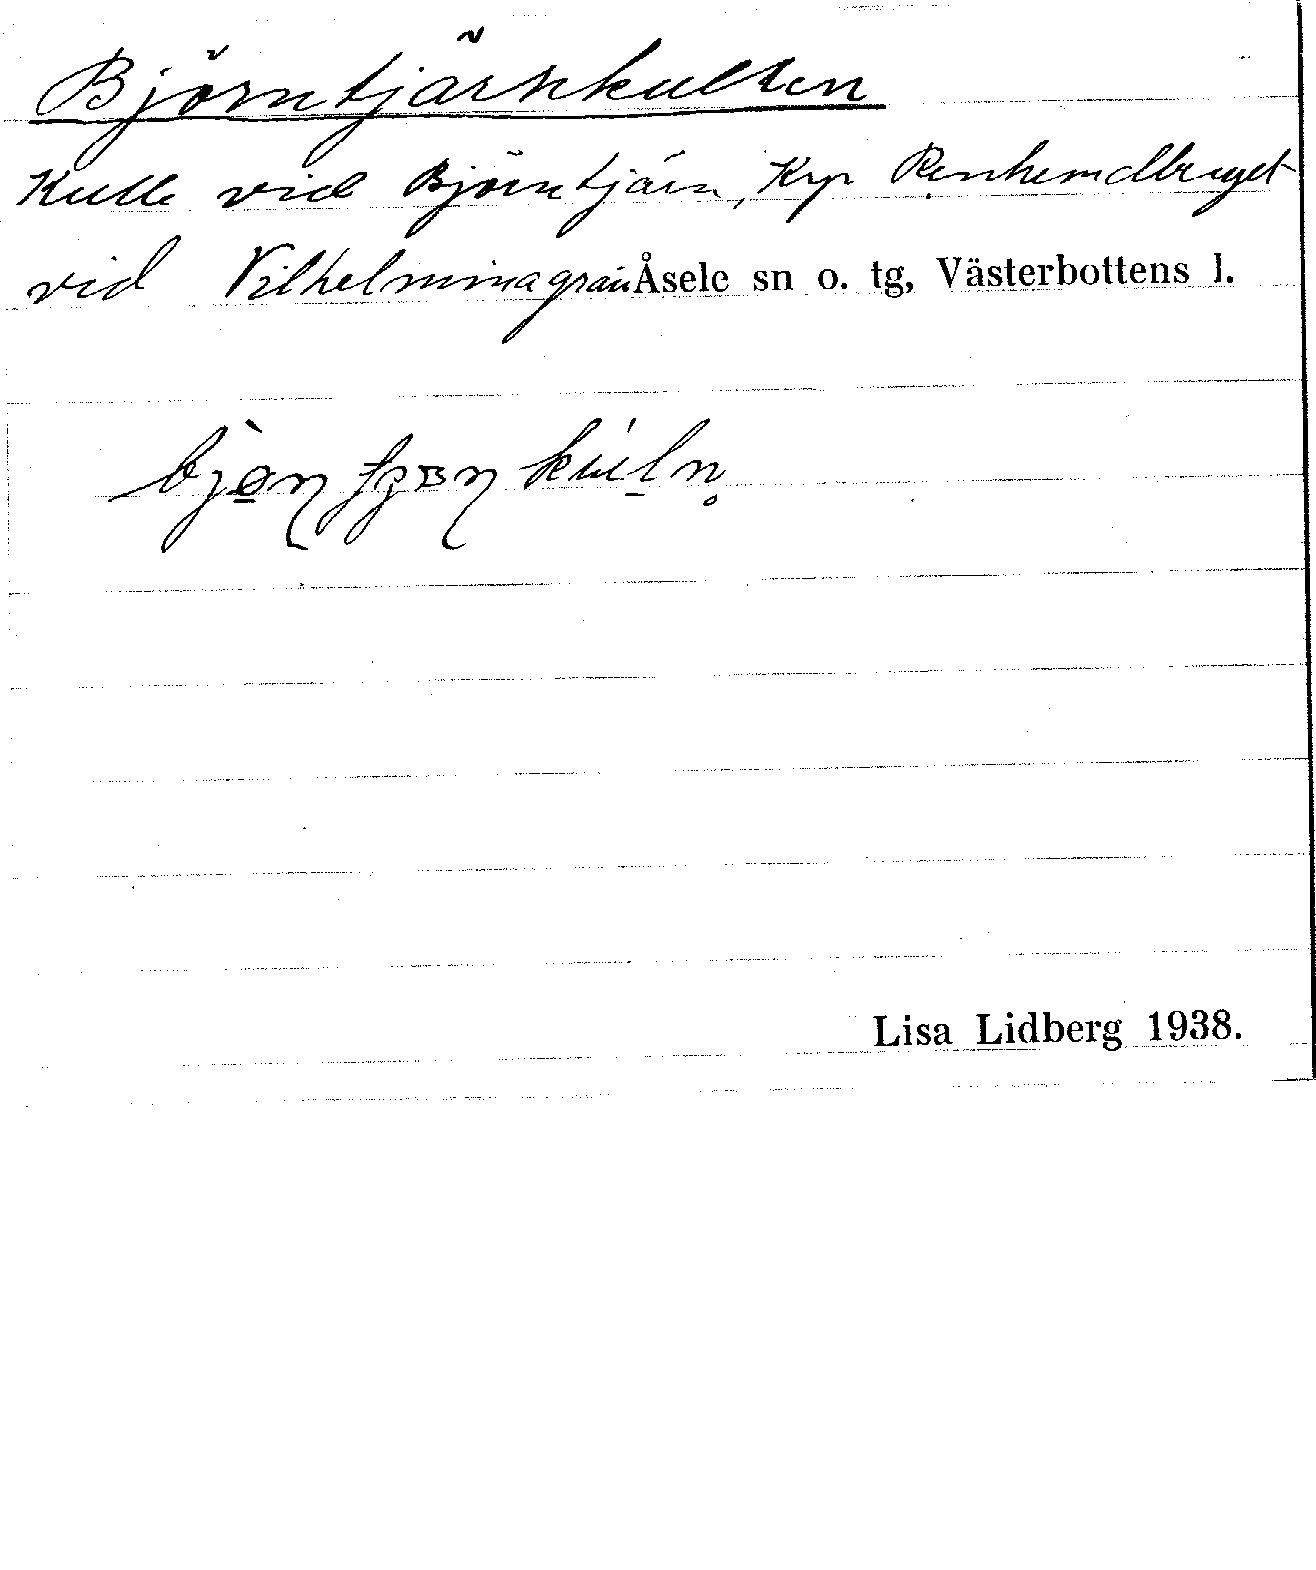 Björntjärnkullen
Kulle vid Björntjärn, Krp Renhemdbruget
vid Vilhelminagrän Åsele sn o. tg, Västerbottens l.
Lisa Lidberg 1938.